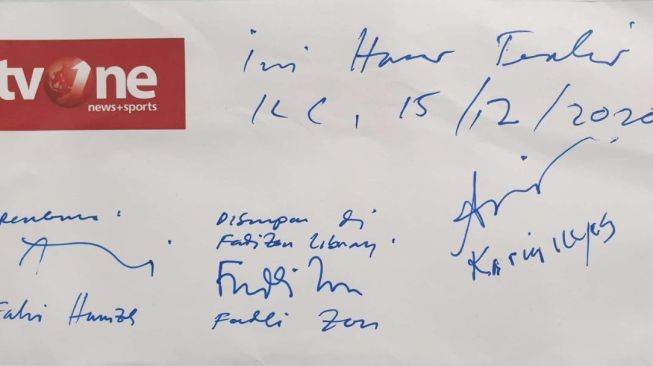 tvOne
news+sports
ini Honor Terakhir
ILC, 15/12/2020
Penerima:
Disimpan di
Fadli Zon Library.
Karni Ilyas
Fahri Hamzah
Fadli Zon